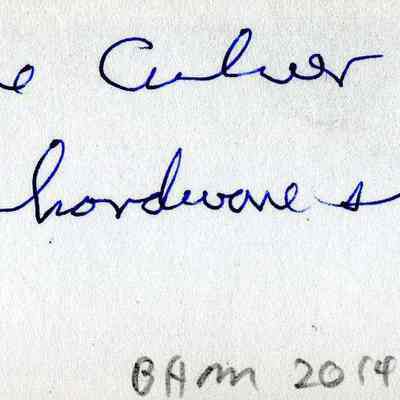 e Culver
hardware s
BAM 2014